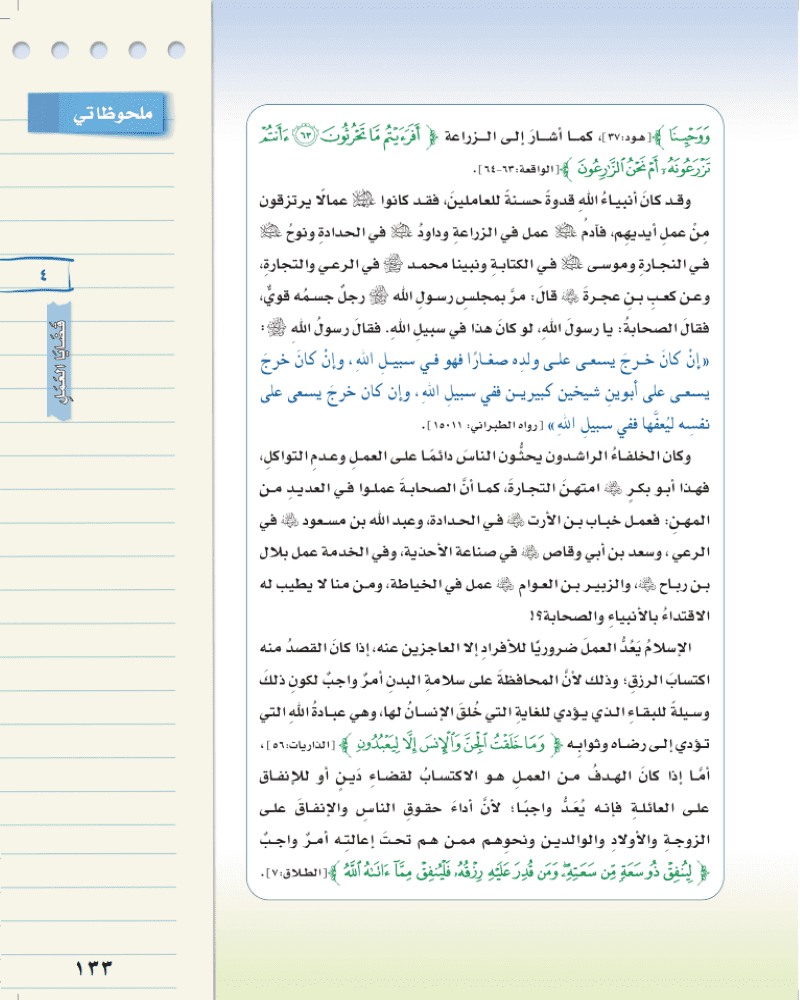 ملحوظاتي
٤
قضايا العمل
وَوَحْيِنَا ﴾[هود:٣٧]، كمـا أشـارَ إلـى الـزراعة ﴿ أَفَرَءَيْتُم مَّا تَحْرُثُونَ ٦٣ ءَأَنتُمْ
تَزْرَعُونَهُۥٓ أَمْ نَحْنُ ٱلزَّٰرِعُونَ ﴾[الواقعة:٦٣-٦٤].
وقـد كانَ أنبيـاءُ اللهِ قدوةً حسـنةً للعاملينَ، فقـد كانـوا ﷺ عمالًا يرتزقون
مِنْ عملِ أيديهِم، فآدمُ ﷺ عمل في الزراعةِ وداودُ ﷺ في الحدادةِ ونوحُ ﷺ
في النجـارةِ وموسـى ﷺ فـي الكتابـةِ ونبينا محمـد ﷺ في الرعـي والتجارةِ،
وعـن كعبِ بـنِ عجـرةَ ﷺ قالَ: مرَّ بمجلسِ رسـولِ الله ﷺ رجلٌ جسـمُه قويٌّ،
فقالَ الصحابةُ: يا رسولَ اللهِ، لو كانَ هذا في سبيلِ اللهِ. فقالَ رسولُ اللهِ ﷺ :
«إنْ كانَ خـرجَ يسـعـى علـى ولدِه صغـارًا فهو فـي سبيـلِ اللهِ، وإنْ كانَ خرجَ
يسعـى على أبوينِ شيخين كبيريـن ففي سبيلِ اللهِ، وإن كان خرجَ يسعى على
نفسِه ليُعفَّها ففي سبيلِ اللهِ» [رواه الطبراني: ١٥٠١١].
وكان الخلفـاءُ الراشـدون يحثُّـون الناسَ دائمًـا علـى العمـلِ وعـدمِ التواكلِ،
فهـذا أبـو بكـرٍ ﷺ امتهـنَ التجـارةَ، كمـا أنَّ الصحابـةَ عملـوا فـي العديـدِ مـن
المهـنِ؛ فعمـل خباب بـن الأرت ﷺ فـي الحـدادة، وعبد الله بن مسـعود ﷺ في
الرعي، وسعد بن أبي وقاص ﷺ في صناعة الأحذية، وفي الخدمة عمل بلال
بـن ربـاح ﷺ، والزبيـر بـن العـوام ﷺ عمـل في الخياطـة، ومـن منا لا يطيب له
الاقتداءُ بالأنبياءِ والصحابة؟!
الإسلامُ يَعُدُّ العملَ ضروريًا للأفرادِ إلا العاجزين عنه، إذا كانَ القصدُ منه
اكتسابَ الرزقِ؛ وذلك لأنَّ المحافظةَ على سلامةِ البدنِ أمرٌ واجبٌ لكونِ ذلكَ
وسيلةً للبقـاءِ الـذي يـؤدي للغايةِ التـي خُلقَ الإنسـانُ لهـا، وهي عبـادةُ اللهِ التي
تـؤدي إلـى رضـاه وثوابِـه ﴿ وَمَا خَلَقْتُ ٱلْجِنَّ وَٱلْإِنسَ إِلَّا لِيَعْبُدُونِ ﴾ [الذاريات:٥٦]،
أمَّـا إذا كانَ الهـدفُ مـن العمـلِ هـو الاكتسـابُ لقضـاءِ دَيـنٍ أو للإنفـاقِ
علـى العائلـةِ فإنـه يُعَـدُّ واجبًـا؛ لأنَّ أداءَ حقـوقِ النـاسِ والإنفـاقَ علـى
الزوجـةِ والأولادِ والوالديـن ونحوهـم ممـن هـم تحـتَ إعالتـه أمـرٌ واجبٌ
﴿ لِيُنفِقْ ذُو سَعَةٍ مِّن سَعَتِهِۦ وَمَن قُدِرَ عَلَيْهِ رِزْقُهُۥ فَلْيُنفِقْ مِمَّآ ءَاتَىٰهُ ٱللَّهُ ﴾[الطلاق:٧].
١٣٣